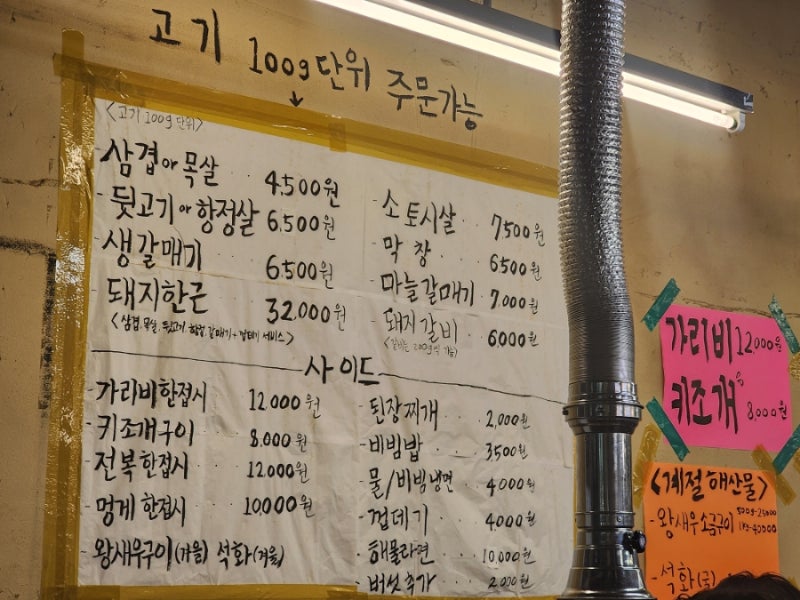 고기 100g단위 주문가능
<고기 100g단위>
삼겹or목살 4,500원
뒷고기or항정살 6,500원
생갈매기 6,500원
돼지한근 32,000원
소토시살 7500원
막창 6500원
마늘갈매기 7,000원
돼지갈비 6000원
사이드
가리비한접시 12,000원
키조개구이 8,000원
전복한접시 12,000원
멍게한접시 10,000원
왕새우구이(가을) 석화(겨울)
된장찌개 2,000원
비빔밥 3500원
물/비빔냉면 4000원
껍데기 4,000원
해물라면 10,000원
버섯추가 2,000원
가리비 12,000원
키조개 8,000원
<계절해산물>
-왕새우소금구이
-석화